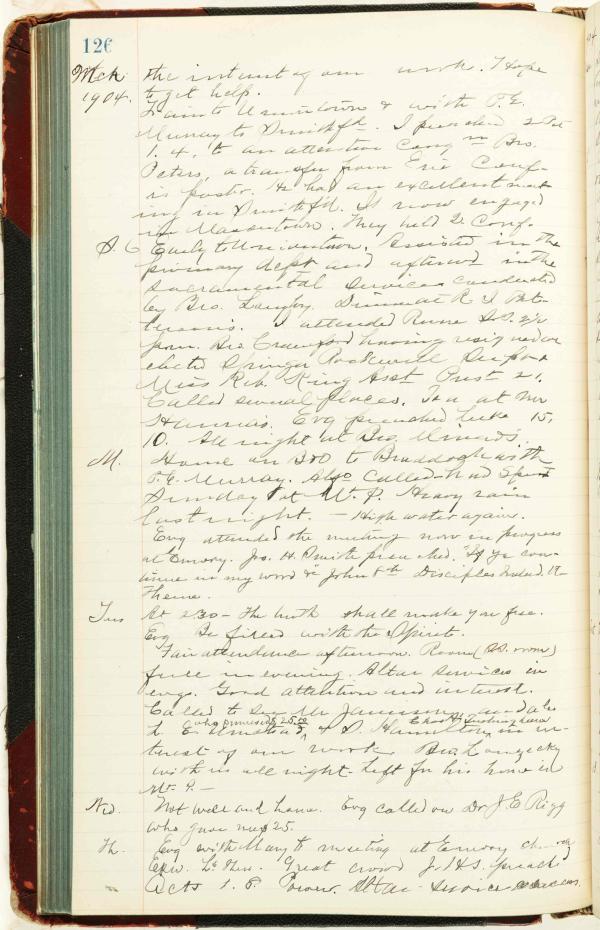 126
Mch the interest of our work. Hope
1904. to get help.
Train to Uniontown & with T. E.
Murray to Smithfd. I preached 2 Pet
1. 4, to an attentive congn Bro.
Peters, a transfer from Erie Conf.
is pastor. He had an excellent meet
ing in Smithfd. Is now engaged
in Masontown. They held 2d Conf.
S. 6 Early to Uniontown. Assisted in the
primary dept and afterwd in the
sacramental services conducted
by Bro. Langby. Dinner at R. I. Pat-
. I attended S.S. 2½
p.m. Bro Crawford having resigned we
elected Springer Rockwell Supt &
Miss Reb. King Asst Prest 21.
Called several places. Tea at Mr
Hanna's. Evg preached Luke 15,
10. All night at Bro. Minerd's.
M. Home on B&O to Braddock with
T. E. Murray. Also called had spent
Sunday at W. P. Heavy rain
last night. — High water again.
Evg attended the meeting now in progress
at Emory. Jos. H. Smith preached. "If ye con-
tinue in my word &c John 8th Disciples Indeed. 
Theme.
Tues At 2:30 - The truth shall make you free.
Evg Be filled with the Spirit.
Fair attendance afternoon. Room (S.S. room)
full in evening. Altar services in
evgs. Good attention and interest.
Called to see Mr Jamison and also
who promised $25.00
& S. Hamilton, in in-
terest of our work. Bro. 
with us all night. Left for his home in
W. P. —
Wed. Not well and home. Evg called on Dr J. E. Rigg
who gave me $25.
Th. Evg with Mary to meeting at Emory church
Great crowd J. H. S. preachd
Acts 1. 8. Power. Altar service